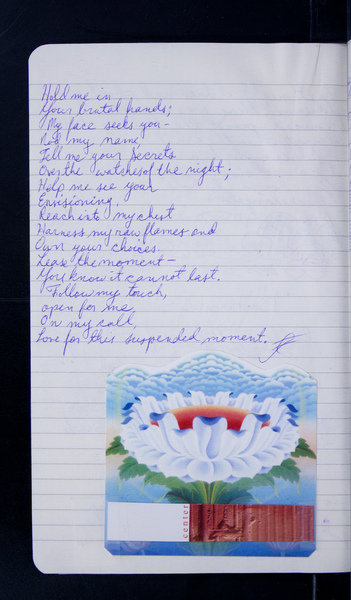 Hold me in
Your brutal hands;
My face seeks you—
Not my name,
Tell me your secrets
Over the watches of the night;
Help me see your
Envisioning,
Reach into my chest
Harness my raw flames and
Own your choices.
Lease the moment—
You know it cannot last.
Follow my touch,
open for me
On my call,
Love for this suspended moment.
center